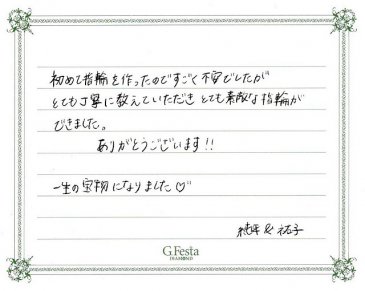 初めて指輪を作ったのですごく不安でしたが
とても丁寧に教えていただきとても素敵な指輪が
できました。
ありがとうございます!!
一生の宝物になりました♡
& 祐子
G.Festa
DIAMOND